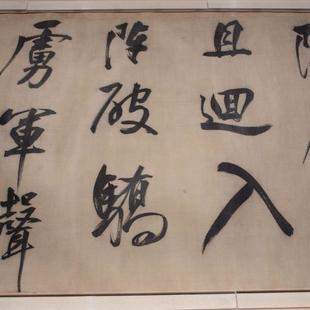 且迴入
陣破驕
虜軍聲